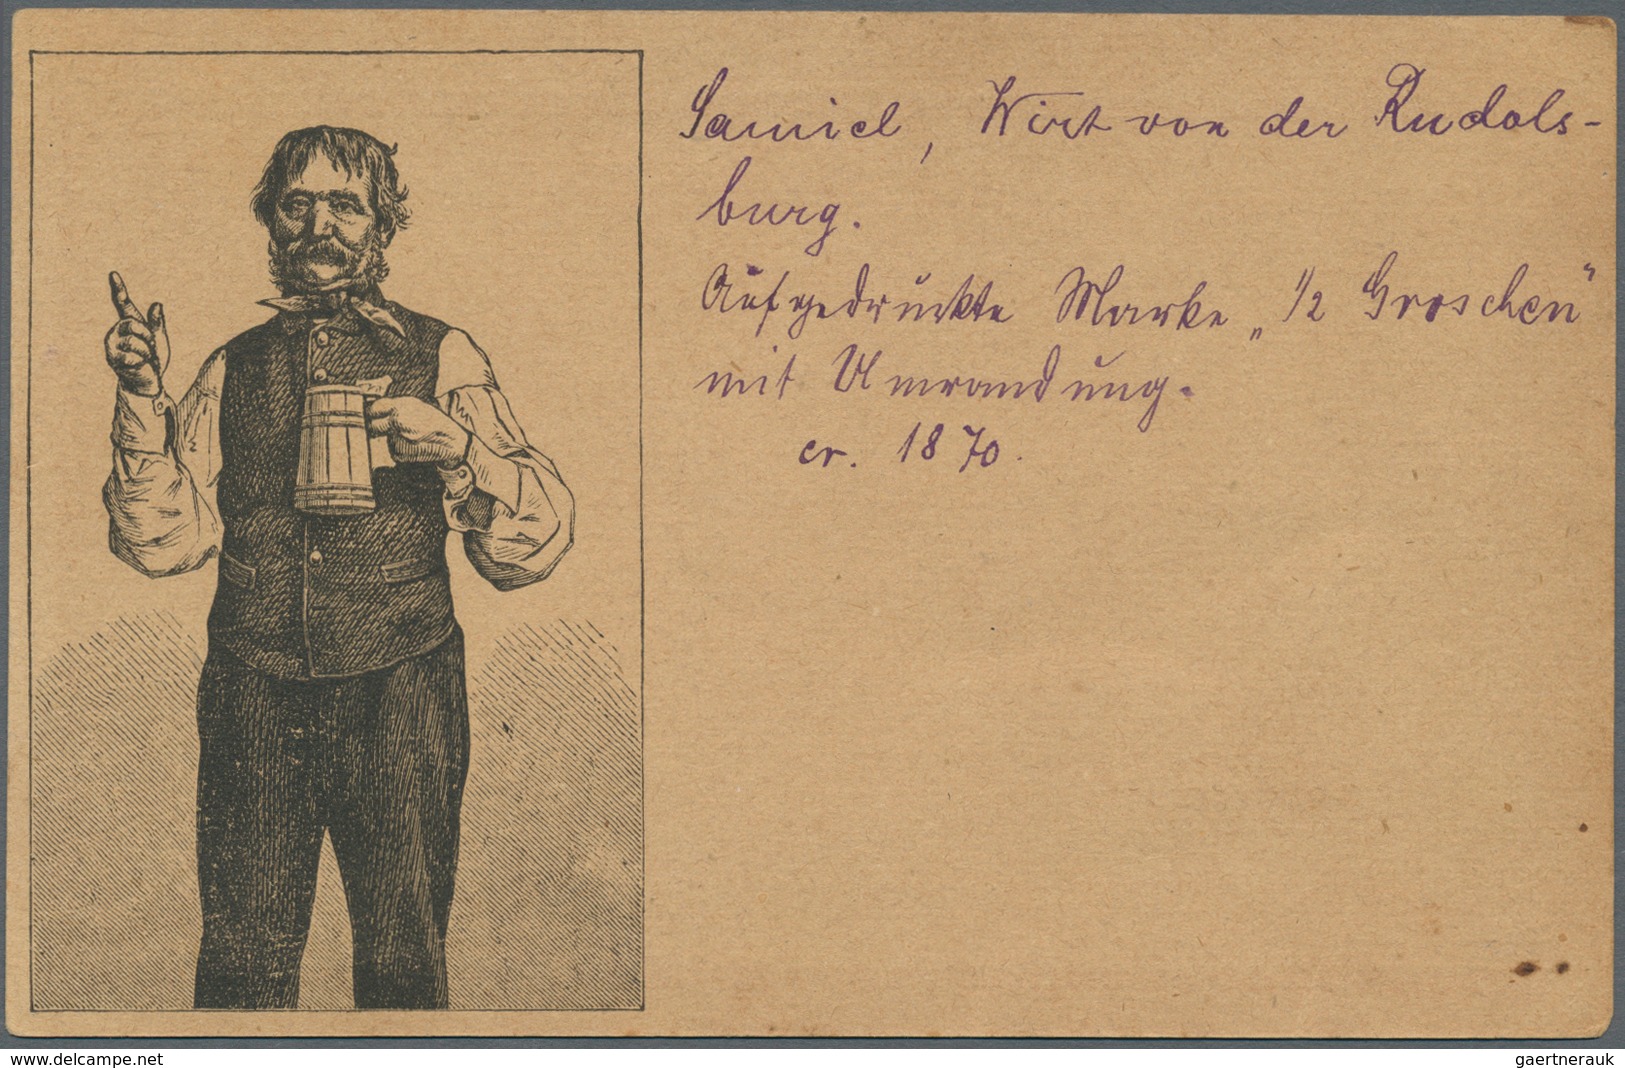 Samiel, Wirt von der Rudols-
burg.
Aufgedruckte Marke „1/2 Groschen"
mit Umrandung.
cr. 1870.
www.delcampe.net
gaertnerauk